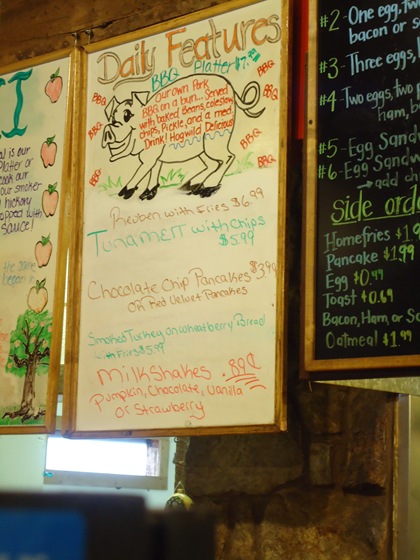 I
al is our
Platter or
cook our
our smoker
hickory
topped with
sauce!
Daily Features
BBQ Platter $7.99
BBQ
BBQ
BBQ
BBQ
BBQ
BBQ
BBQ
BBQ
Our own Pork
BBQ on a bun... Served
with baked Beans, coleslaw,
chips, Pickle, and a med.
Drink! Hogwild Delicious
Reuben with Fries $6.99
Tuna Melt with Chips
$5.99
Chocolate Chip Pancakes $3.99
OR Red Velvet Pancakes
Smoked Turkey on wheatberry Bread
with Fries $5.99
Milkshakes .89¢
Pumpkin, Chocolate, Vanilla
or Strawberry
#2 - One egg, two
bacon or
#3 - Three eggs,
#4 Two eggs, two p
ham, b
#5 - Egg Sand
#6 - Egg Sandw
→ add ch
Side orde
Homefries $1.9
Pancake $1.99
Egg $0.99
Toast $0.69
Bacon, Ham, or Sa
Oatmeal $1.99